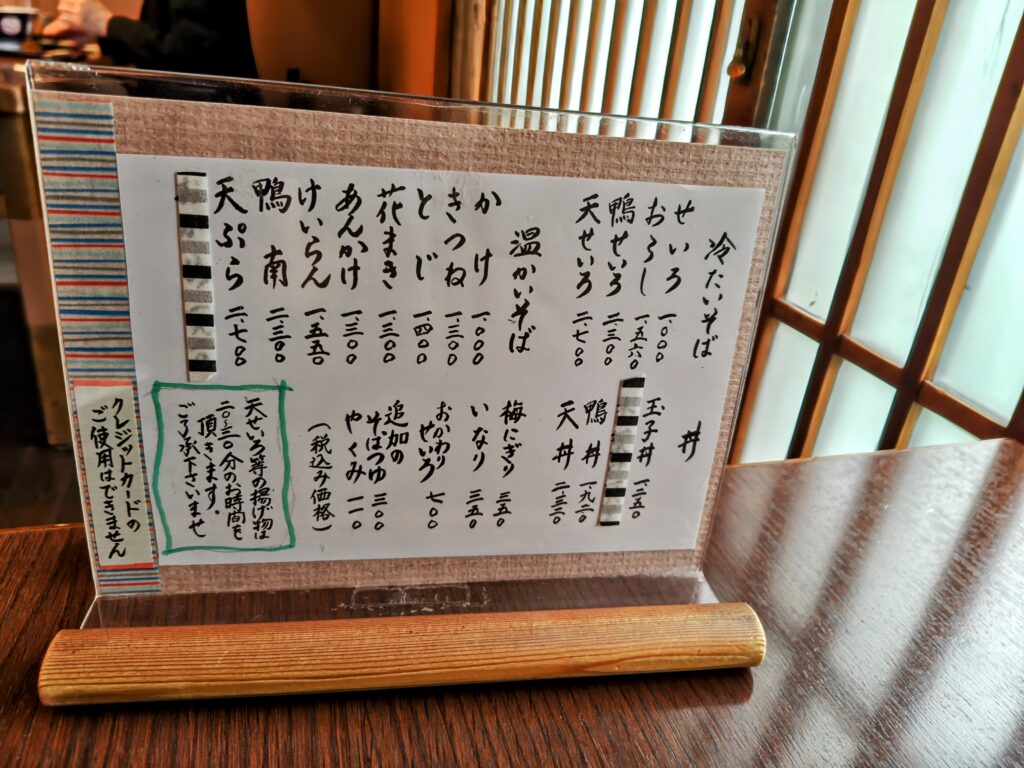 冷たいそば
せいろ 一.〇〇〇
おろし 一.五六〇
鴨せいろ 二.三〇〇
天せいろ 二.七〇〇
温かいそば
かけ 一.〇〇〇
きつね 一.三〇〇
とじ 一.四〇〇
花まき 一.三〇〇
あんかけ 一.三〇〇
けいらん 一.五五〇
鴨南 二.三〇〇
天ぷら 二.七〇〇
丼
玉子丼 一.二五〇
鴨丼 一.九二〇
天丼 二.三五〇
梅にぎり 三五〇
いなり 三五〇
おかわり
せいろ 七〇〇
追加の
そばつゆ 三〇〇
やくみ 一一〇
(税込み価格)
天せいろ等の揚げ物は
二〇~三〇分のお時間を
頂きます。
ご了承下さいませ
クレジットカードの
ご使用はできません